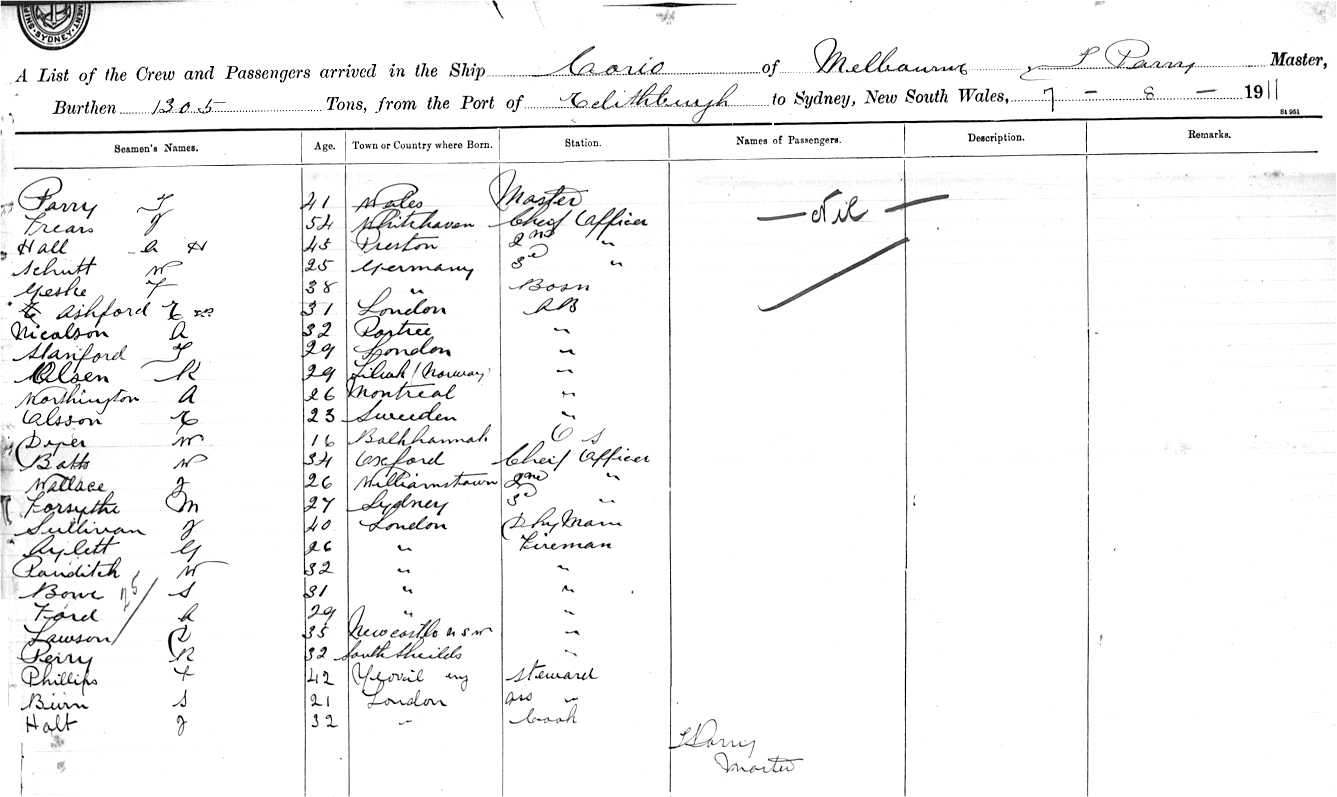 SYDNEY
A List of the Crew and Passengers arrived in the Ship Corio of Melbourne T Parry Master,
Burthen 1305 Tons, from the Port of Edithburgh to Sydney, New South Wales, 7 - 8 - 1911
Seamen's Names. Age. Town or Country where Born. Station. Names of Passengers. Description. Remarks.
Parry T 41 Wales Master — Nil —
Frears J 54 Whitehaven Cheif Officer
Hall A H 45 Preston 2nd "
Schutt W 25 Germany 3rd "
Geshe F 38 " Bosn
Ashford E 31 London AB
Nicolson A 32 Portree "
Stanford F 29 London "
Olsen K 29 Norway "
Worthington A 26 Montreal "
Olsson E 23 Sweeden "
Dyer W 16 Balhhannah O S
Batts W 34 Oxford Cheif Officer
Wallace J 26 Williamstown 2nd "
Forsythe M 27 Sydney 3rd "
Sullivan J 40 London Dky Man
Aylett G 26 " Fireman
Panditch W 32 " "
Bowe S 31 " "
Ford A 29 " "
Lawson 35 Newcastle N S W "
Perry R 32 South Sheilds "
Phillips F 42 Yeovil eng Steward
Burn S 21 London ass "
Holt J 32 " Cook
T Parry
Master